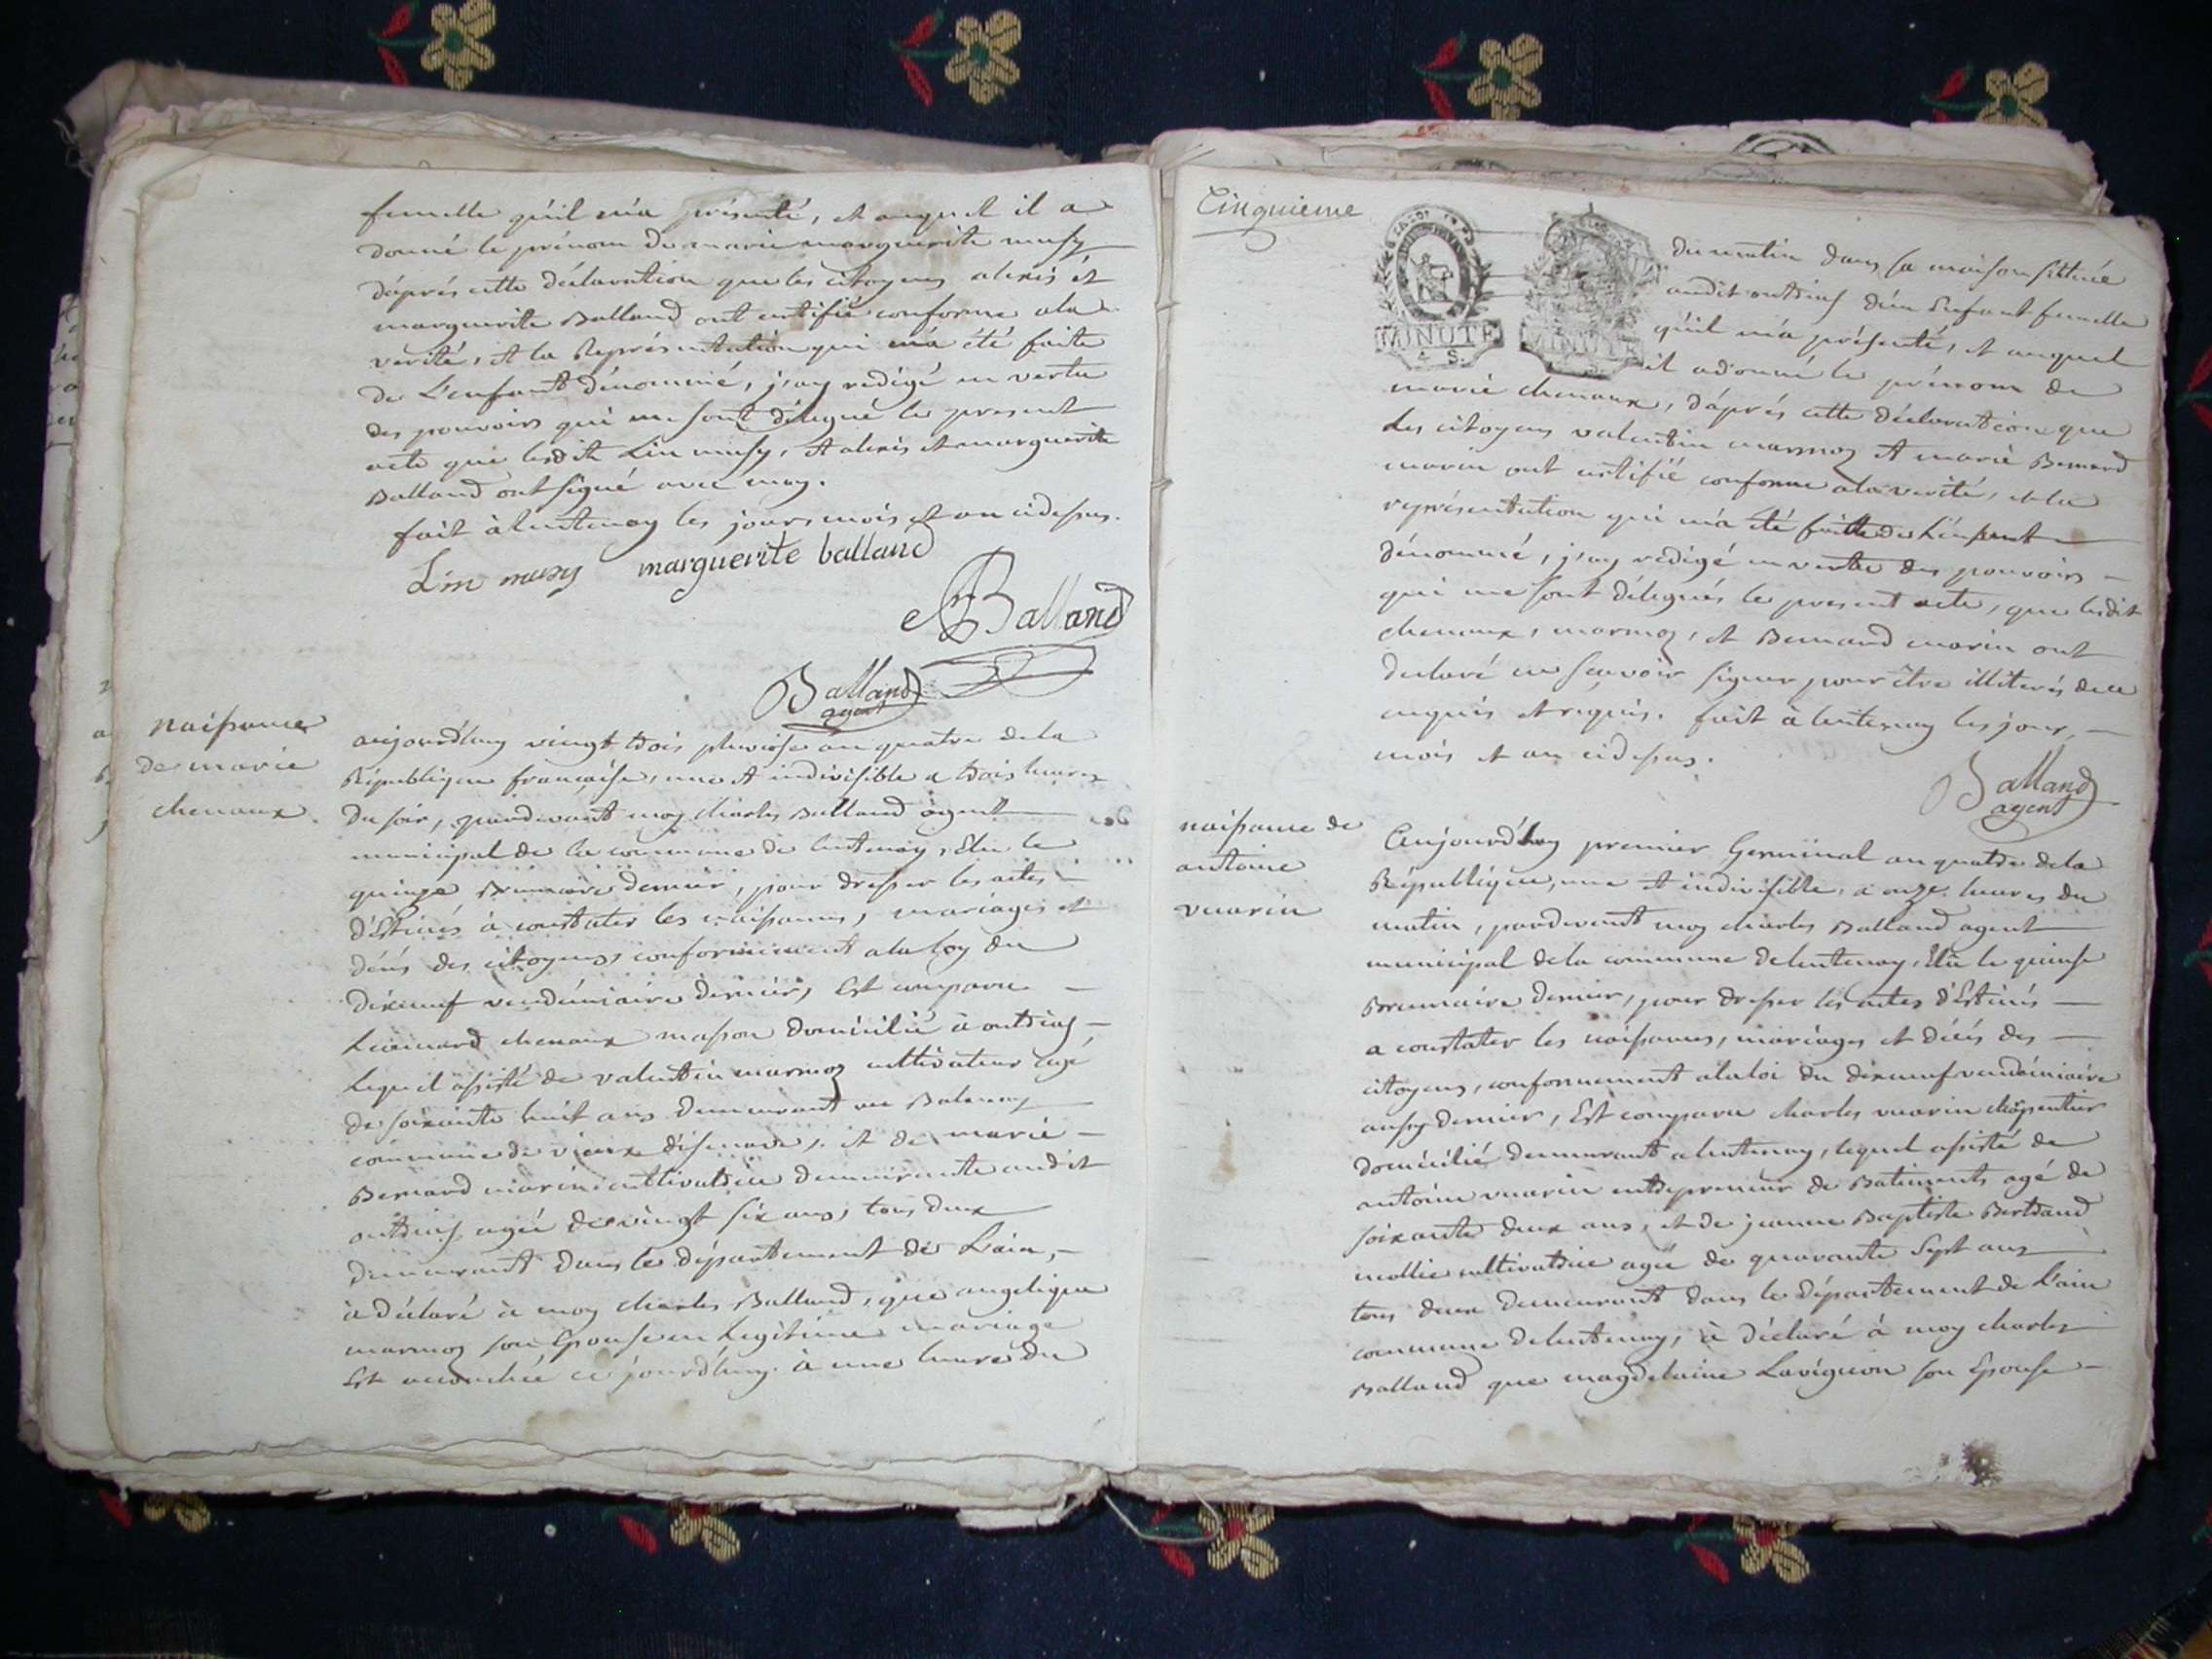 femelle qu'il m'a présenté, et auquel il a
donné le prénom de marie marguerite musy
d'après cette déclaration que les citoyens alexis et
marguerite Balland ont certifié conforme a la
verité, et la Représentation qui m'a été faite
de L'enfant dénommé, j'ay redigé en vertu
des pouvoirs qui me sont délegué le present
acte que lesdit Lin musy, et alexis et marguerite
Balland ont signé avec moy.
fait à lentenay les jours mois et an cidessus.
Lin musy marguerite balland
Balland
Balland
agent
naissance
de marie
chenaux.
aujourd'huy vingt trois pluviose an quatre de la
République française, une et indivisible a trois heures
du soir, pardevant moy charles Balland agent
municipal de la commune de lentenay, Elu le
quinze Brumaire dernier, pour dresser les actes
d'Estinés à constater les naissances, mariages et
décés des citoyens, conformément a la loy du
dixneuf vendémiaire dernier, Est comparu
Léonard chenaux masson domicilié à outriaz
lequel assisté de valentin marmoz cultivateur agé
de soixante huit ans demeurant au Balmay
commune de vieux d'isenave, et de marie
Bernard marin cultivatrice demeurante audit
outriaz agée de vingt six ans, tous deux
demeurant dans le département de L'ain,
à déclaré à moy charles Balland, que angelique
marmoz son Epouse en Legitime mariage
Est accouchée ce jourd'huy à une heure du
Cinquieme
MINUTE
4 S.
MINUTE
du matin dans sa maison sittuée
audit outriaz d'un Enfant femelle
qu'il m'a présenté, et auquel
il a donné le prénom de
marie chenaux, d'après cette déclaration que
les citoyens valentin marmoz et marie Bernard
marin ont certifié conforme a la verité, et la
représentation qui m'a été faitte de L'enfant
dénommé, j'ay redigé en vertu des pouvoirs
qui me sont délegués le present acte, que lesdit
chenaux, marmoz, et Bernard marin ont
declaré ne scavoir signer pour être illiterés de ce
enquis et requis. fait à lentenay les jour,
mois et an cidessus.
Balland
agent
naissance de
antoine
vuarin
Aujourd'huy premier Germinal an quatre de la
République, une et indivisible, a onze heures du
matin, pardevant moy charles Balland agent
municipal de la commune de lentenay, Elu le quinse
Brumaire dernier, pour dresser les actes d'Estinés
a constater les naissances, mariages et décés des
citoyens, conformement a la loi du dixneuf vendémiaire
aussy dernier, Est comparu charles vuarin charpentier
domicilié demeurant a lentenay, lequel assisté de
antoine vuarin entrepreneur de Batiments agé de
soixante deux ans, et de jeanne Baptiste Bertrand
mollie cultivatrice agée de quarante sept ans
tous deux demeurant dans le département de L'ain
commune de lentenay, à déclaré à moy charles
Balland que magdelaine Lavignon son Epouse